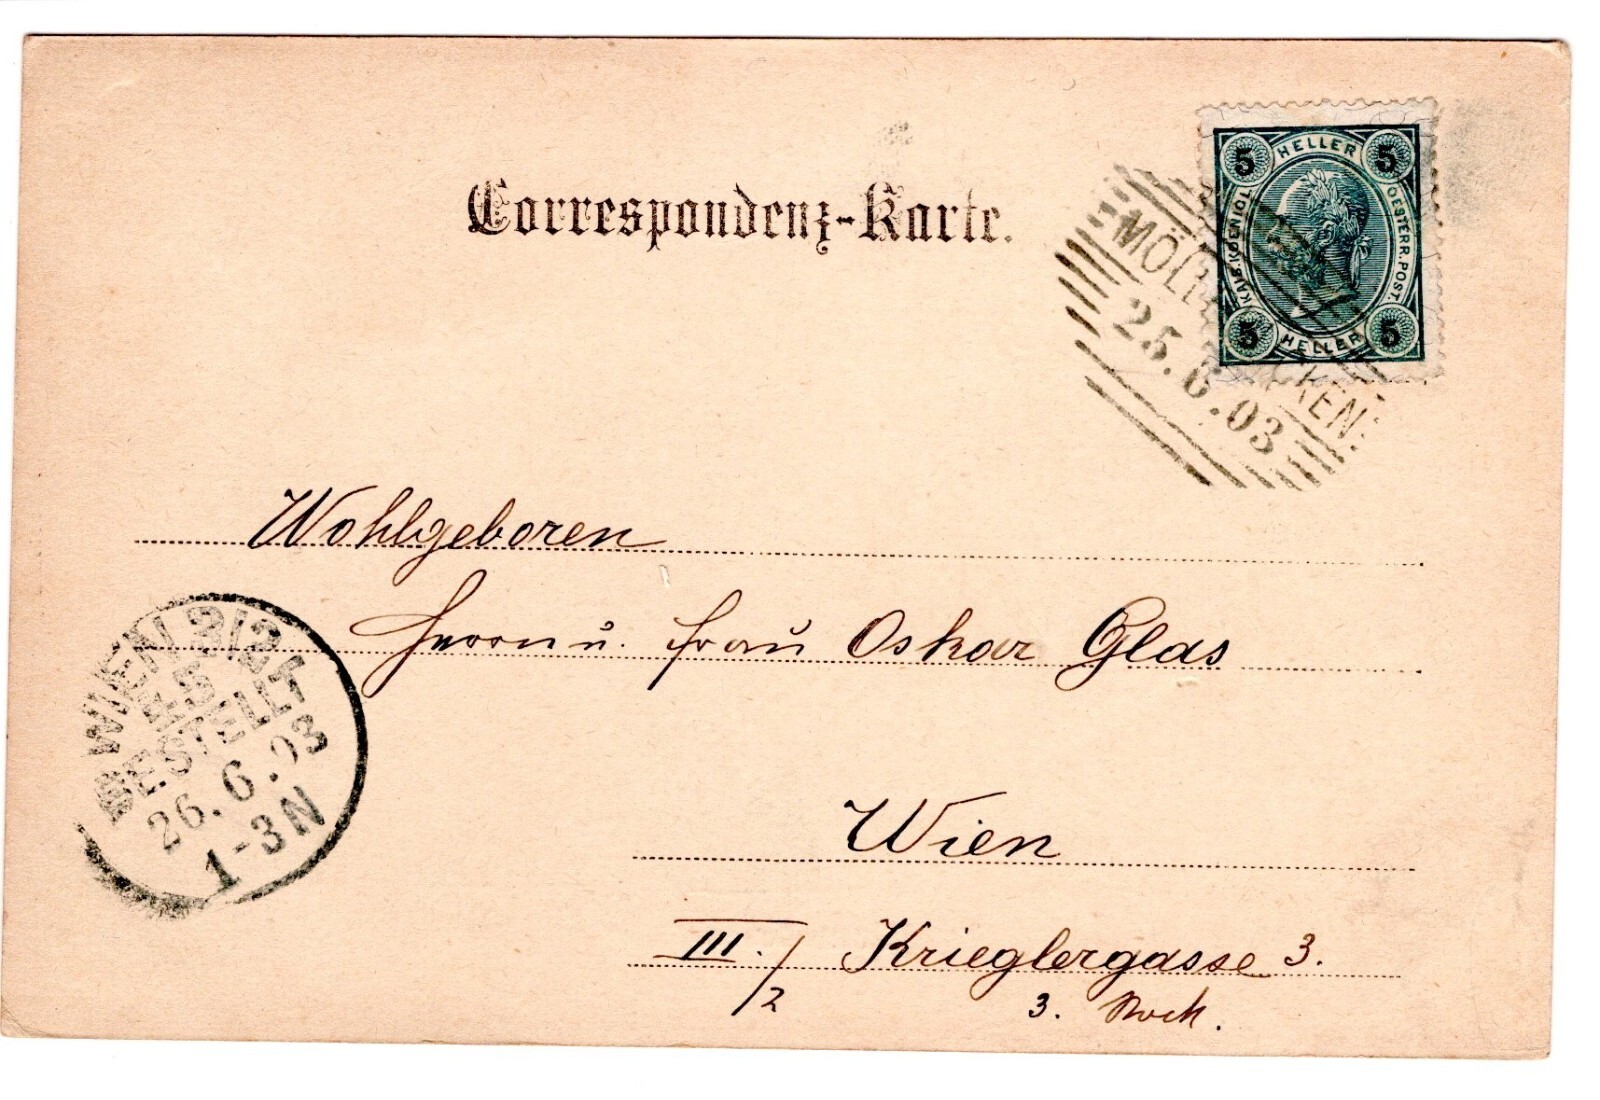 Correspondenz-Karte.
5 HELLER 5
KAIS.KOENIGL.
OESTERR.POST.
5 HELLER 5
25.6.03
Wohlgeboren
Herrn u. Frau Oskar Glas
Wien
III./2 Krieglergasse 3.
3. Stock.
WIEN 3/2
BESTELLT
26.6.03
1-3N